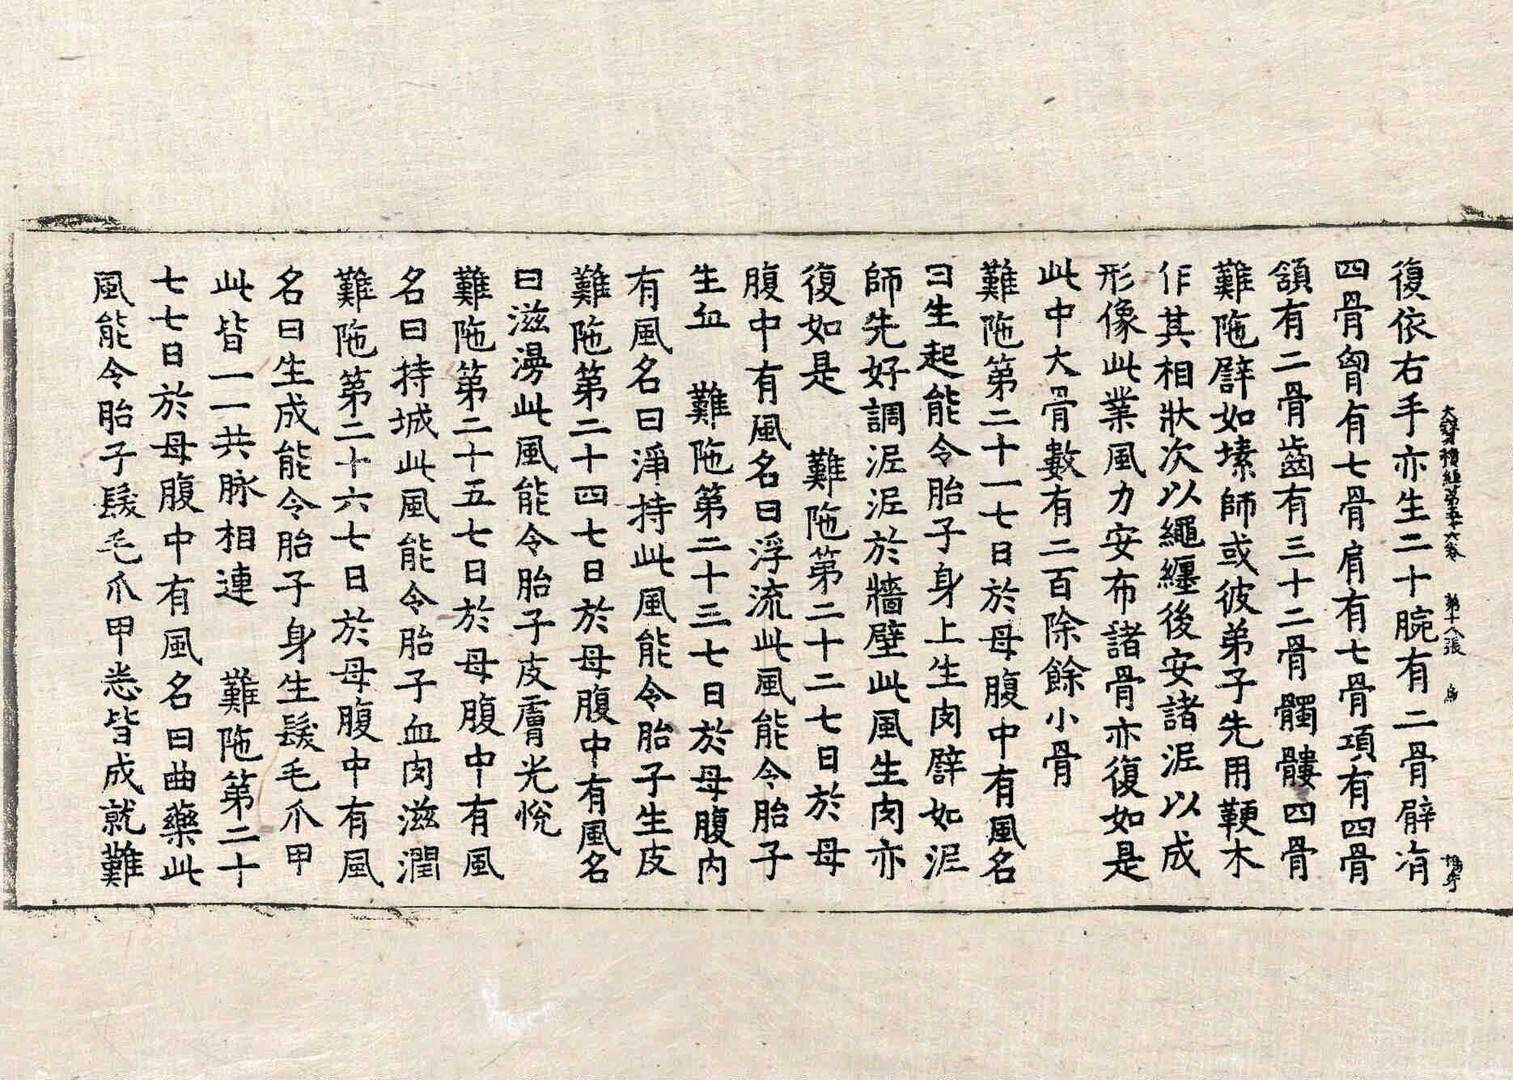 大寶積經第五十六卷 第十八張 鳥
復依右手亦生二十腕有二骨臂有
四骨胷有七骨肩有七骨項有四骨
頷有二骨齒有三十二骨髑髏四骨
難陁譬如塐師或彼弟子先用鞕木
作其相狀次以繩纏後安諸泥以成
形像此業風力安布諸骨亦復如是
此中大骨數有二百除餘小骨
難陁第二十一七日於母腹中有風名
曰生起能令胎子身上生肉譬如泥
師先好調泥泥於牆壁此風生肉亦
復如是 難陁第二十二七日於母
腹中有風名曰浮流此風能令胎子
生血 難陁第二十三七日於母腹內
有風名曰淨持此風能令胎子生皮
難陁第二十四七日於母腹中有風名
曰滋漫此風能令胎子皮膚光悅
難陁第二十五七日於母腹中有風
名曰持城此風能令胎子血肉滋潤
難陁第二十六七日於母腹中有風
名曰生成能令胎子身生髮毛爪甲
此皆一一共脉相連 難陁第二十
七七日於母腹中有風名曰曲藥此
風能令胎子髮毛爪甲悉皆成就難